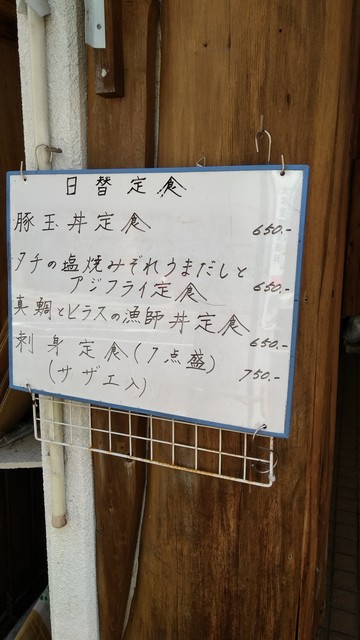 日替定食
豚玉丼定食 650.-
タチの塩焼みぞれうまだしと
アジフライ定食 650.-
真鯛とヒラスの漁師丼定食 650.-
刺身定食(7点盛)
(サザエ入) 750.-